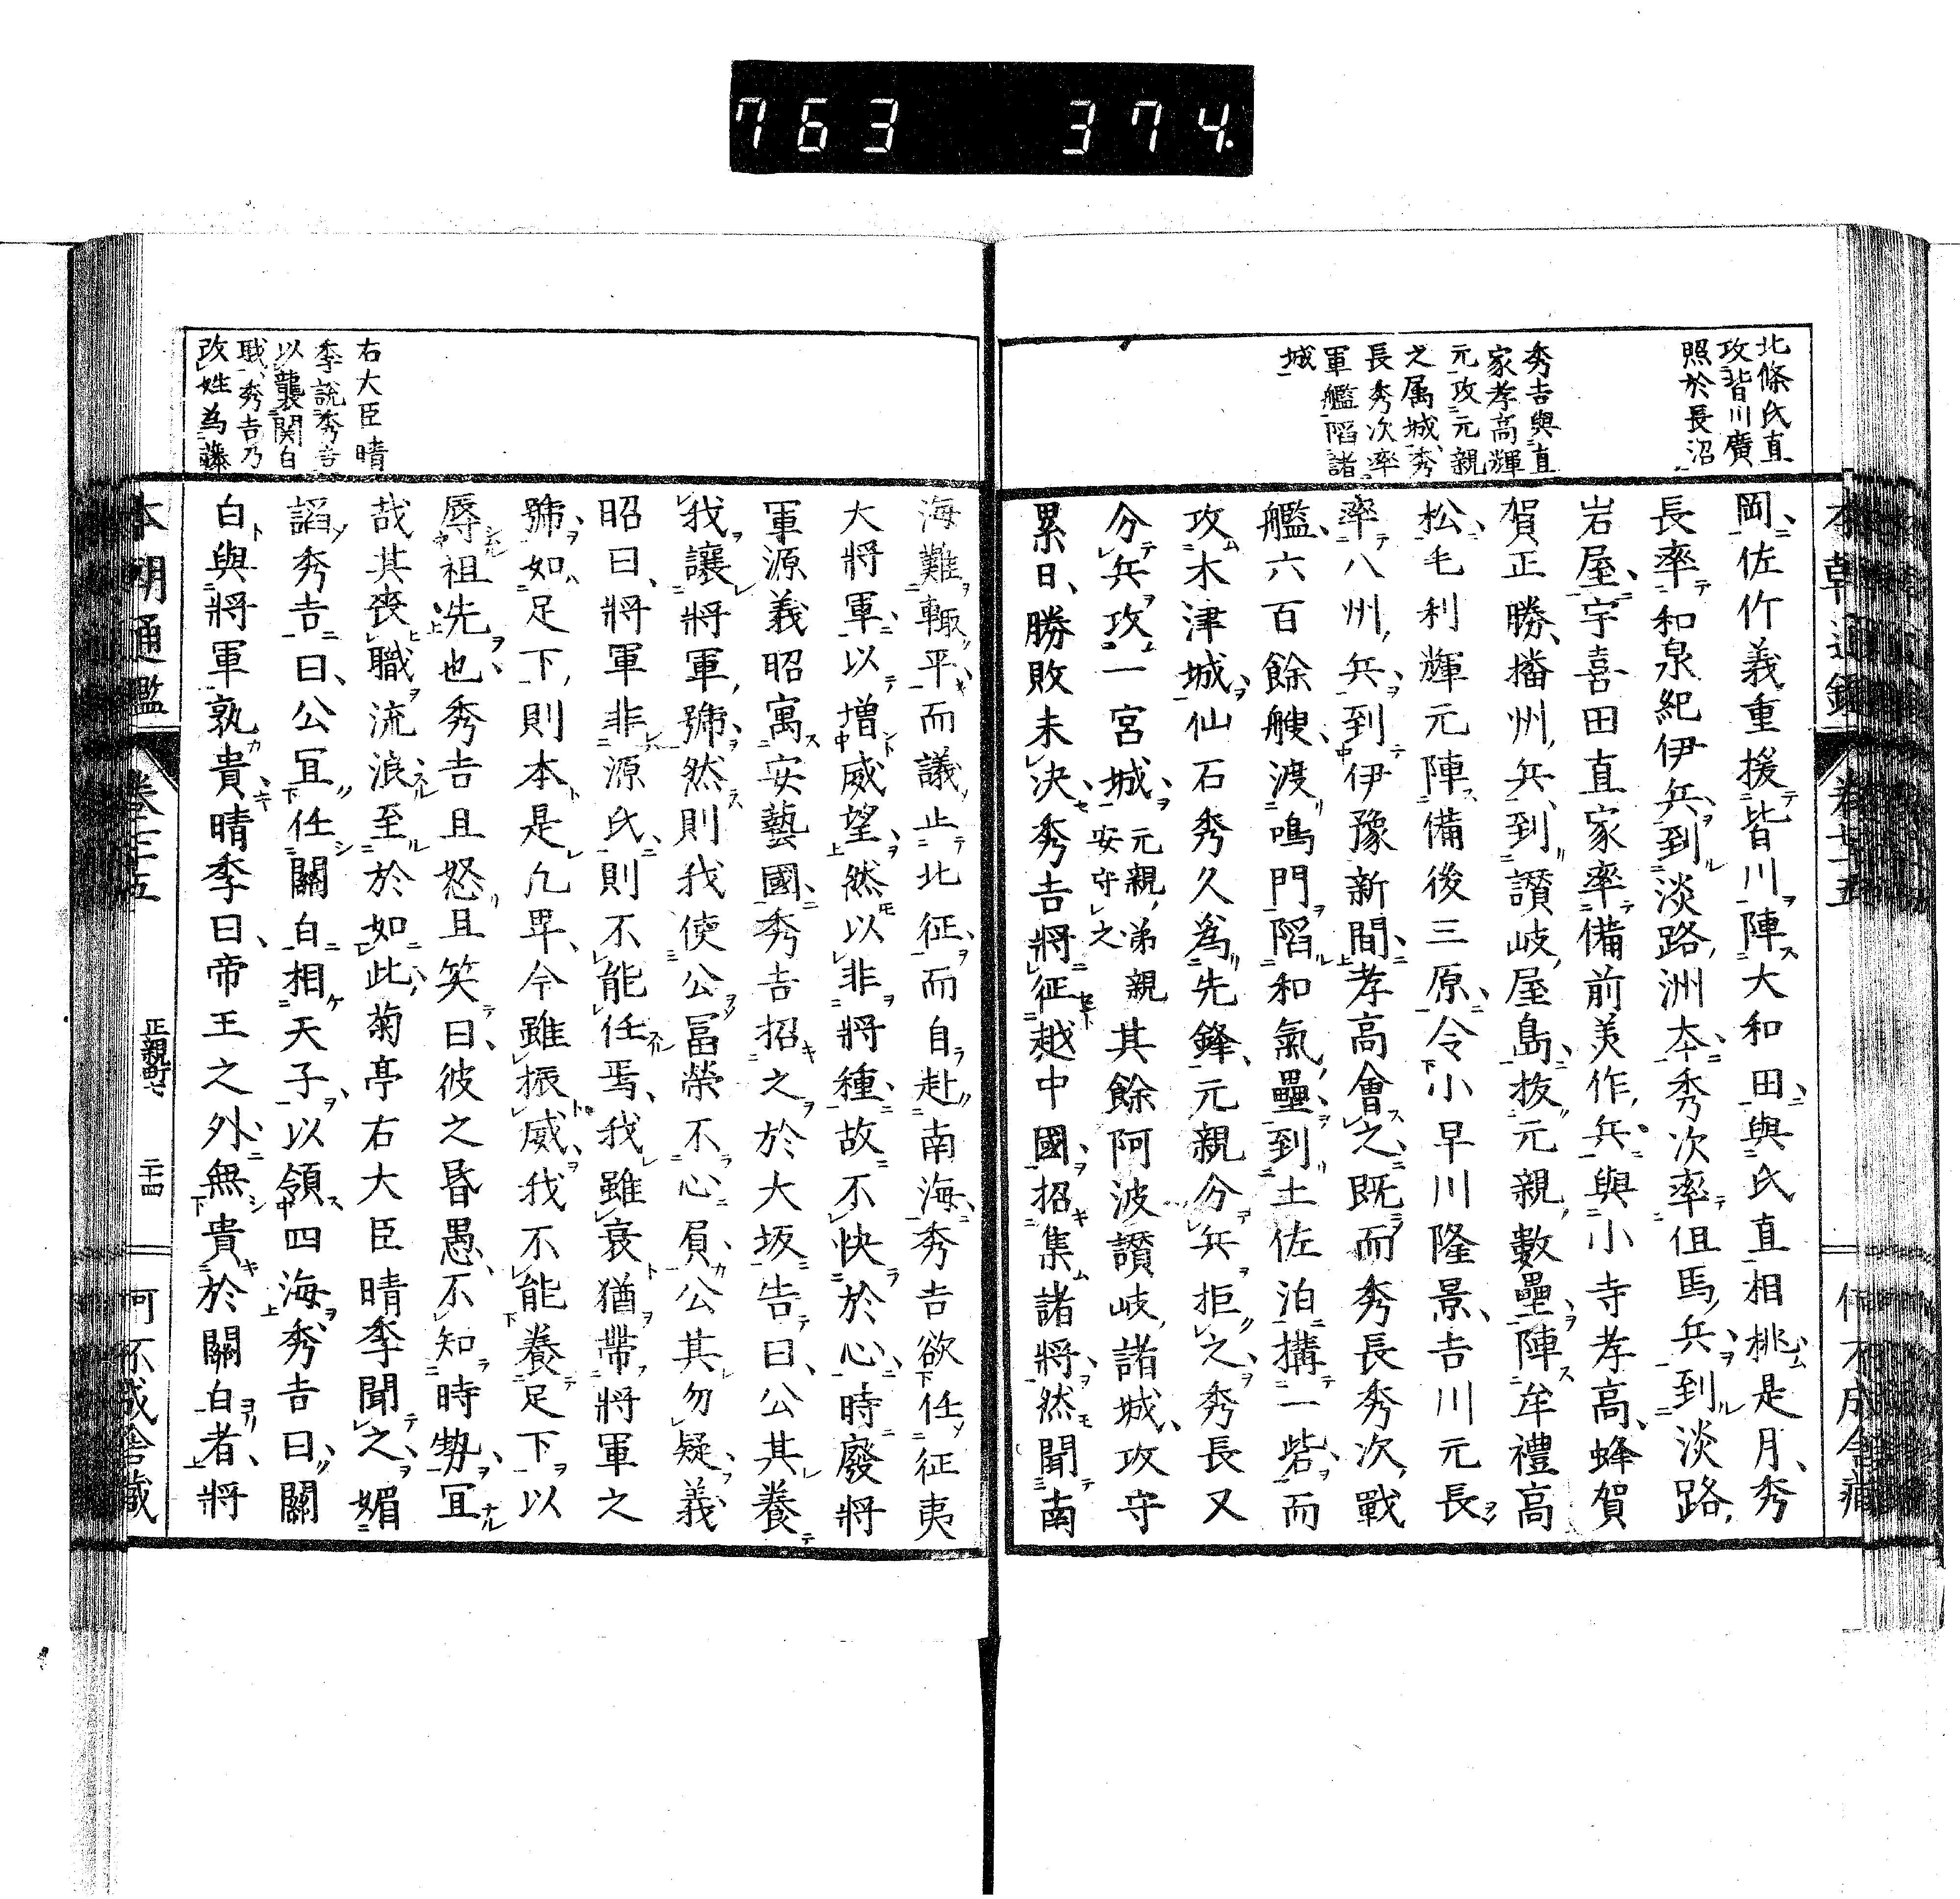 763 374
北條氏直
攻皆川廣
照於長沼
秀吉與直
家孝高輝
元攻元親
之属城秀
長秀次率
軍艦陷諸
城
岡佐竹義重援皆川陣大和田與氏直相挑是月秀
長率和泉紀伊兵到淡路洲本秀次率但馬兵到淡路
岩屋宇喜田直家率備前美作兵與小寺孝高蜂賀
賀正勝播州兵到讃岐屋島拔元親數壘陣牟禮高
松毛利輝元陣備後三原令小早川隆景吉川元長
率八州兵到伊豫新間孝高會之既而秀長秀次戰
艦六百餘艘渡鳴門陷和氣壘到土佐泊搆一砦而
攻木津城仙石秀久為先鋒元親分兵拒之秀長又
分兵攻一宮城元親弟親安守之其餘阿波讃岐諸城攻守
累日勝敗未決秀吉將征越中國招集諸將然聞南
海難輙平而議止北征而自赴南海秀吉欲任征夷
大將軍以增威望然以非將種故不快於心時廢將
軍源義昭寓安藝國秀吉招之於大坂告曰公其養
我讓將軍號然則我使公冨榮不心屓公其勿疑義
昭曰將軍非源氏則不能任焉我雖衰猶帶將軍之
號如足下則本是凢畀今雖振威我不能養足下以
辱祖先也秀吉且怒且笑曰彼之昏愚不知時勢冝
哉其喪職流浪至於如此菊亭右大臣晴季聞之媚
謟秀吉曰公冝任關白相天子以領四海秀吉曰關
白與將軍孰貴晴季曰帝王之外無貴於關白者將
右大臣晴
季説秀吉
以襲関白
職秀吉乃
改姓為藤
本朝通鑑 卷七十五 正親町七 二十四 何不成舍藏